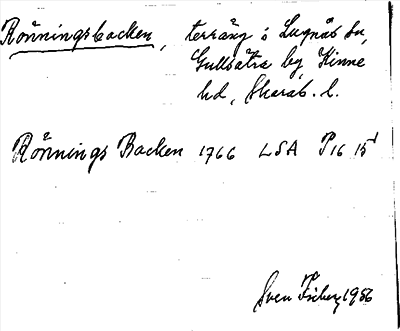 Rönningsbacken, terräng i Lugnås sn,
Gullsåtra by, Kinne
hd, Skarab. l.
Rönnings Backen 1766 LSA P16 15¹
Sven Fribeg 1956